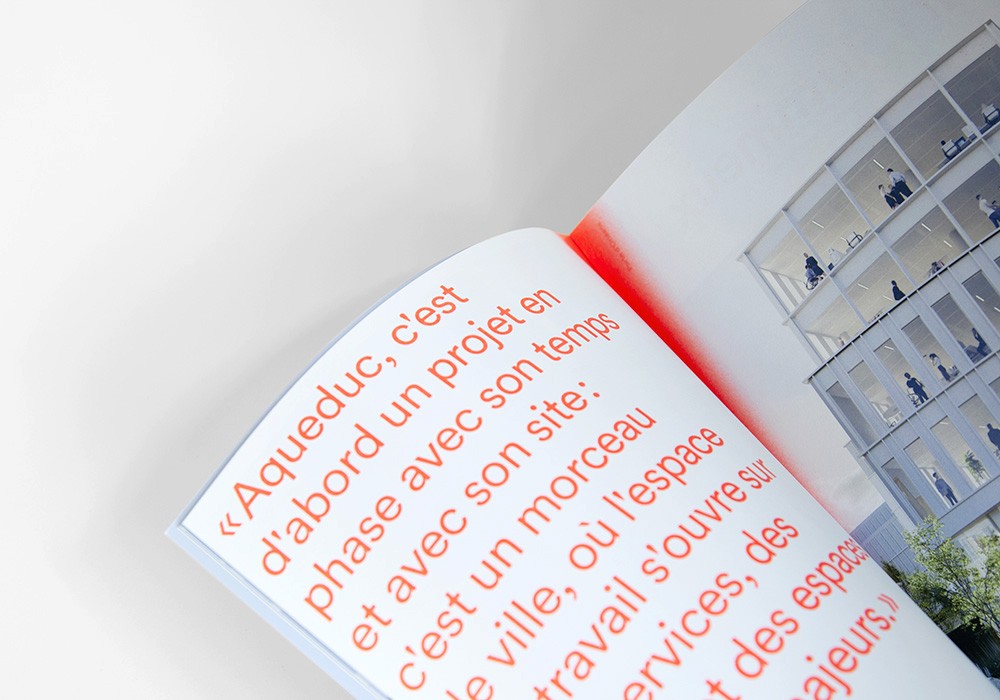 «Aqueduc, c'est
d'abord un projet en
phase avec son temps
et avec son site:
c'est un morceau
ville, où l'espace
travail s'ouvre sur
des
des espaces